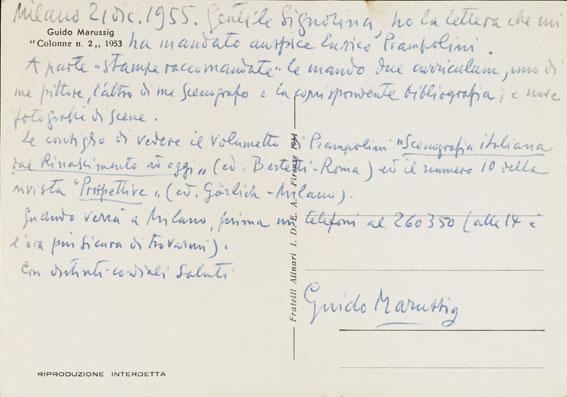 Milano 21 dic. 1955. Gentile Signorina, ho la lettera che mi
Guido Marussig
"Colonne n. 2,, 1953
ha mandato auspice Enrico Prampolini.
A parte "stampe raccomandate" le mando due curriculum, uno di
me pittore, l'altro di me scenografo e la corrispondente bibliografia; e nove
fotografie di scene.
Le consiglio di vedere il volumetto di Prampolini "Scenografia italiana
dal Rinascimento ad oggi,, (ed. Bestetti-Roma) ed il numero 10 della
rivista "Prospettive,, (ed. Görlich-Milano).
Quando verrà a Milano, prima mi telefoni al 260350 (alle 14 è
l'ora più sicura di trovarmi).
Con distinti cordiali saluti
Guido Marussig
Fratelli Alinari I. D. E. A. - Firenze
RIPRODUZIONE INTERDETTA